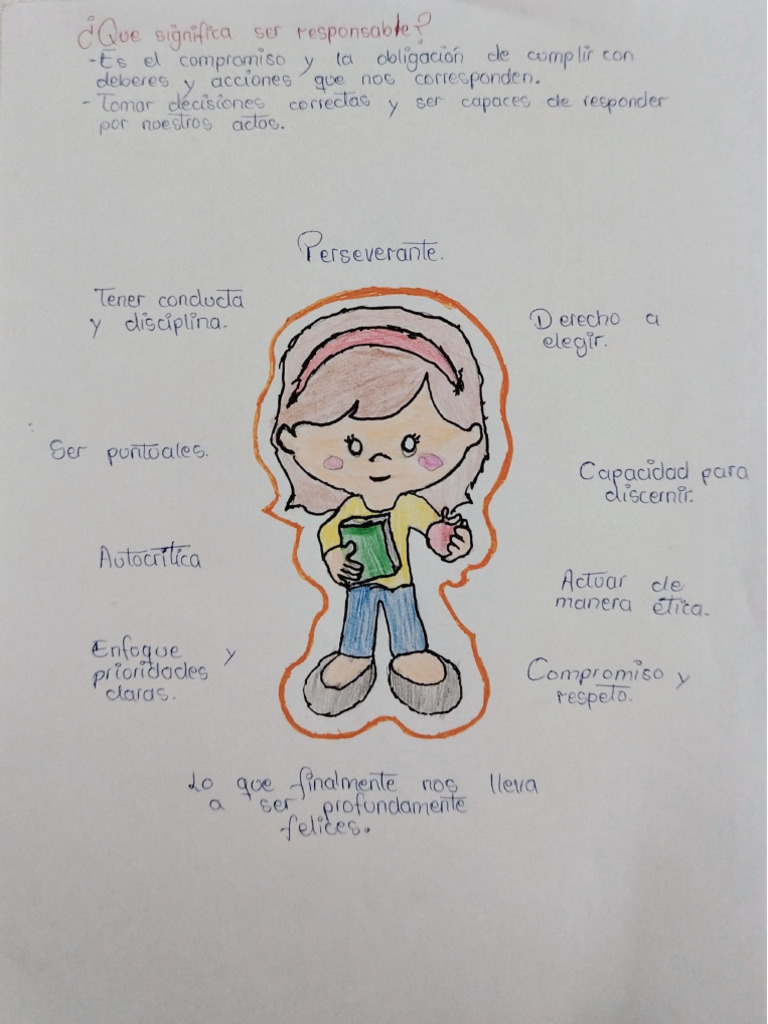 ¿Que significa ser responsable?
- Es el compromiso y la obligación de cumplir con
deberes y acciones que nos corresponden.
- Tomar decisiones correctas y ser capaces de responder
por nuestros actos.
Perseverante.
Tener conducta
y disciplina.
Derecho a
elegir.
Ser puntuales.
Capacidad para
discernir.
Autocrítica
Actuar de
manera ética.
Enfoque y
prioridades
claras.
Compromiso y
respeto.
Lo que finalmente nos lleva
a ser profundamente
felices.